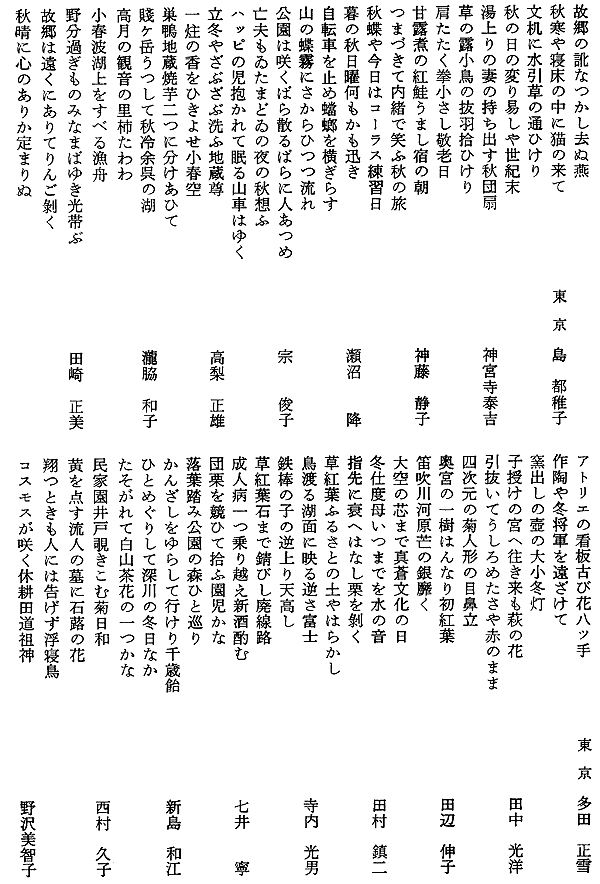 故郷の訛なつかし去ぬ燕
秋寒や寝床の中に猫の来て
東京 島 都稚子
文机に水引草の通ひけり
秋の日の変り易しや世紀末
湯上りの妻の持ち出す秋団扇
神宮寺泰吉
草の露小鳥の抜羽拾ひけり
肩たたく拳小さし敬老日
甘露煮の紅鮭うまし宿の朝
神藤 静子
つまづきて内緒で笑ふ秋の旅
秋蝶や今日はコーラス練習日
暮の秋日曜何もかも迅き
瀬沼 隆
自転車を止め蟷螂を横ぎらす
山の蝶霧にさからひつつ流れ
公園は咲くばら散るばらに人あつめ
宗 俊子
亡夫もゐたまどゐの夜の秋想ふ
ハッピの児抱かれて眠る山車はゆく
立冬やざぶざぶ洗ふ地蔵尊
高梨 正雄
一炷の香をひきよせ小春空
巣鴨地蔵焼芋二つに分けあひて
賤ヶ岳うつして秋冷余呉の湖
瀧脇 和子
高月の観音の里柿たわわ
小春波湖上をすべる漁舟
野分過ぎものみなまばゆき光帯ぶ
田崎 正美
故郷は遠くにありてりんご剝く
秋晴に心のありか定まりぬ
アトリエの看板古び花八ッ手
東京 多田 正雪
作陶や冬将軍を遠ざけて
窯出しの壺の大小冬灯
子授けの宮へ往き来も萩の花
田中 光洋
引抜いてうしろめたさや赤のまま
四次元の菊人形の目鼻立
奥宮の一樹はんなり初紅葉
田辺 伸子
笛吹川河原芒の銀靡く
大空の芯まで真蒼文化の日
冬仕度母いつまでを水の音
田村 鎮二
指先に衰へはなし栗を剝く
草紅葉ふるさとの土やはらかし
鳥渡る湖面に映る逆さ富士
寺内 光男
鉄棒の子の逆上り天高し
草紅葉石まで錆びし廃線路
成人病一つ乗り越え新酒酌む
七井 寧
団栗を競ひて拾ふ園児かな
落葉踏み公園の森ひと巡り
かんざしをゆらして行けり千歳飴
新島 和江
ひとめぐりして深川の冬日なか
たそがれて白山茶花の一つかな
民家園井戸覗きこむ菊日和
西村 久子
黄を点す流人の墓に石蕗の花
翔つときも人には告げず浮寝鳥
コスモスが咲く休耕田道祖神
野沢美智子